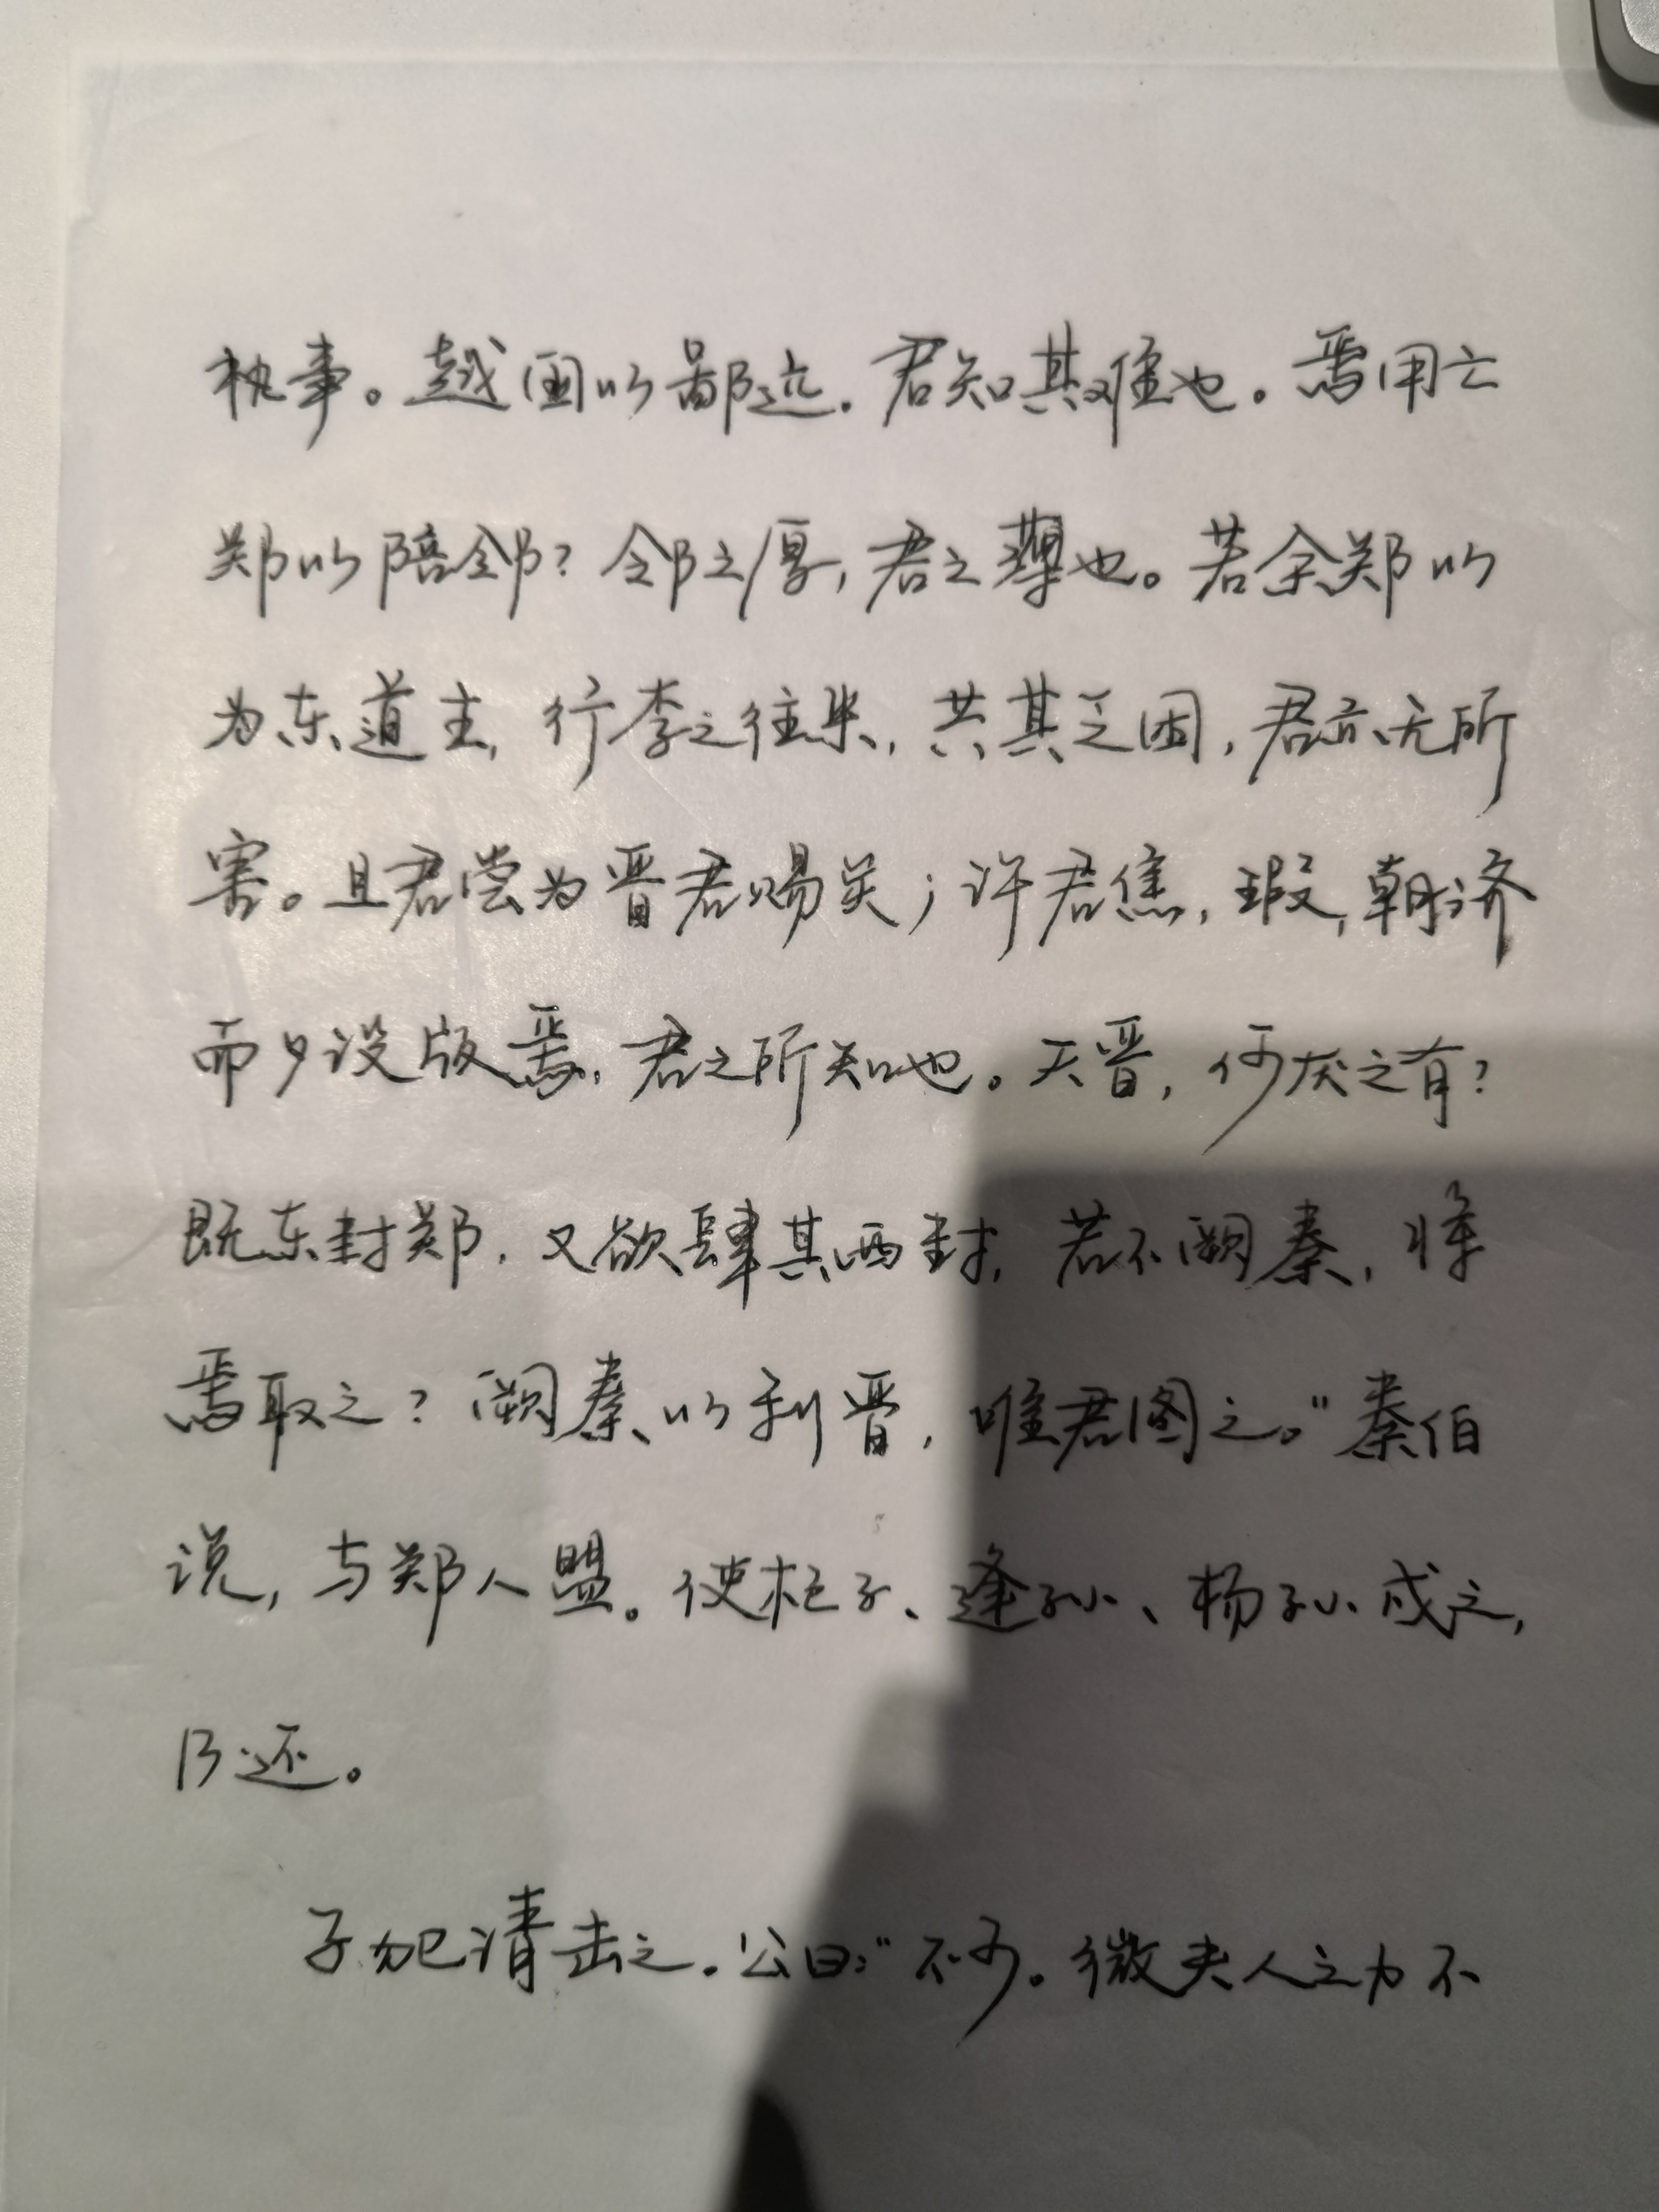 执事。越国以鄙远．君知其难也。焉用亡
郑以陪邻？邻之厚，君之薄也。若舍郑以
为东道主，行李之往来，共其乏困，君亦无所
害。且君尝为晋君赐矣；许君焦，瑕，朝济
而夕设版焉，君之所知也。夫晋，何厌之有？
既东封郑，又欲肆其西封，若不阙秦，将
焉取之？阙秦以利晋，唯君图之。”秦伯
说，与郑人盟。使杞子、逢孙、杨孙戍之，
乃还。
子犯请击之．公曰：“不可。微夫人之力不